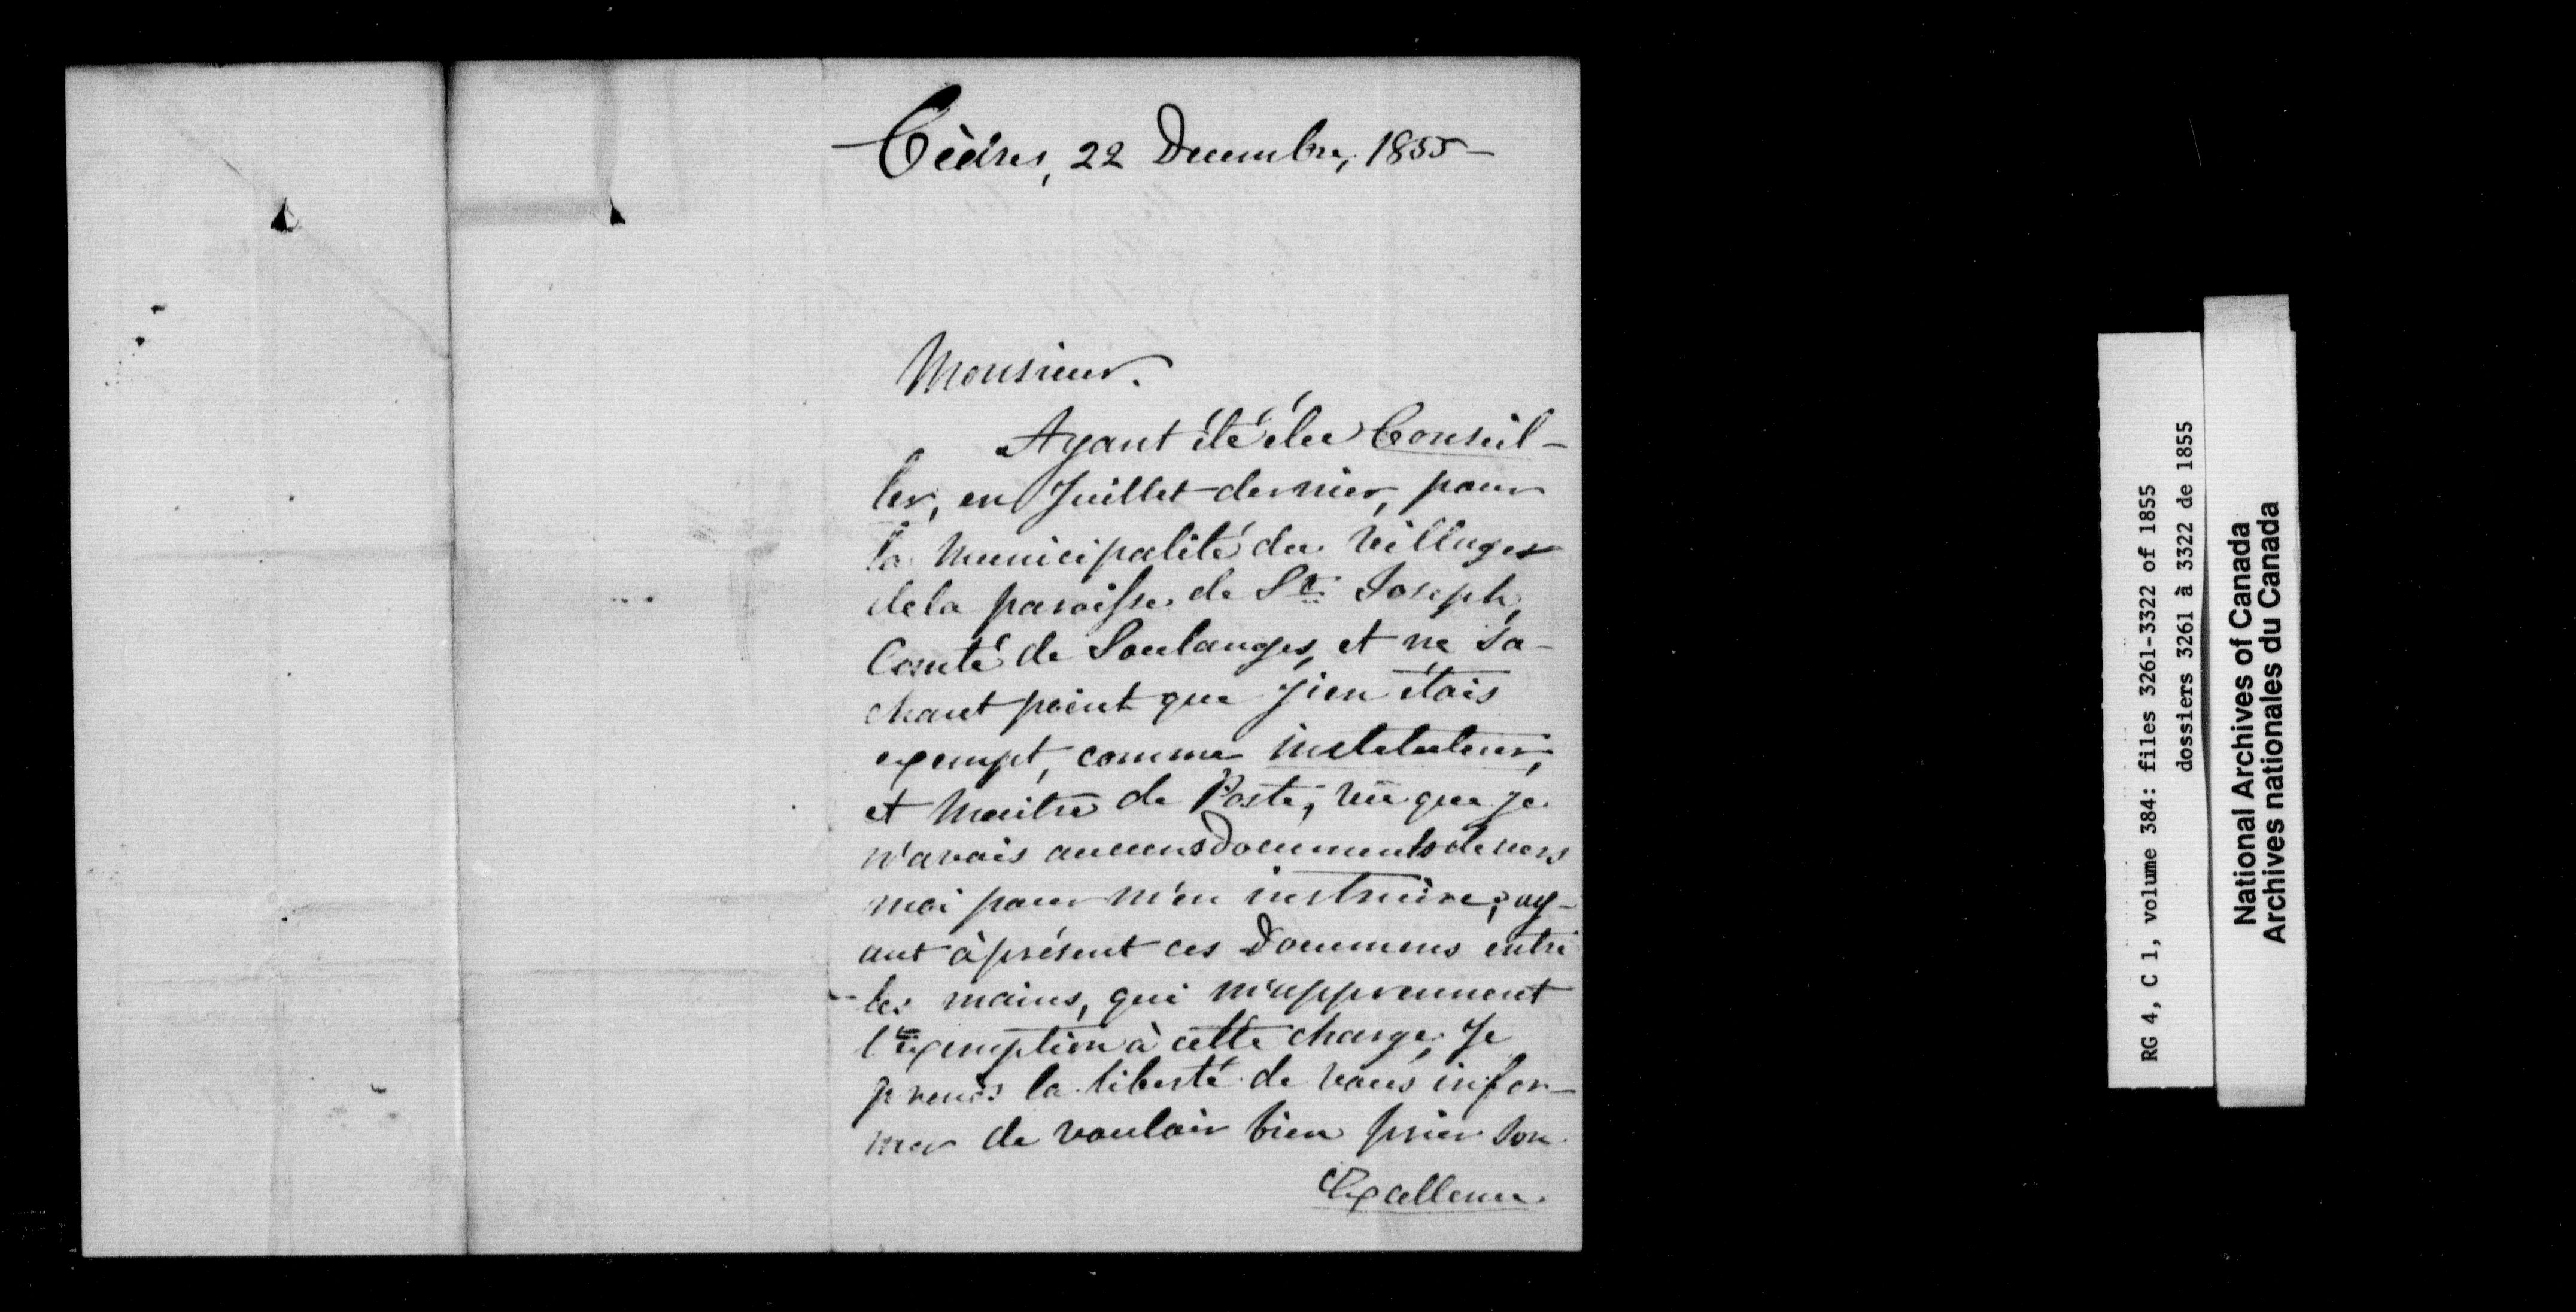 Cèdres, 22 Decembre, 1855 –
Monsieur.
Ayant été élu Conseil-
ler, en Juillet dernier, pour
la Municipalité du Village
dela paroisse de St. Joseph,
Comté de Soulanges, et ne sa-
chant point que j'en étais
exempt, comme instituteur,
et Maitre de Poste, vû que je
n'avais aucuns Documents devers
moi pour m'en instruire; ay-
ant àprésent ces Documens entre
les mains, qui m'apprennent
l'exemption à cette charge, Je
prends la liberté de vous infor-
mer de vouloir bien prier Son
Excellence
RG 4, C 1, volume 384: files 3261-3322 of 1855
dossiers 3261 à 3322 de 1855
National Archives of Canada
Archives nationales du Canada